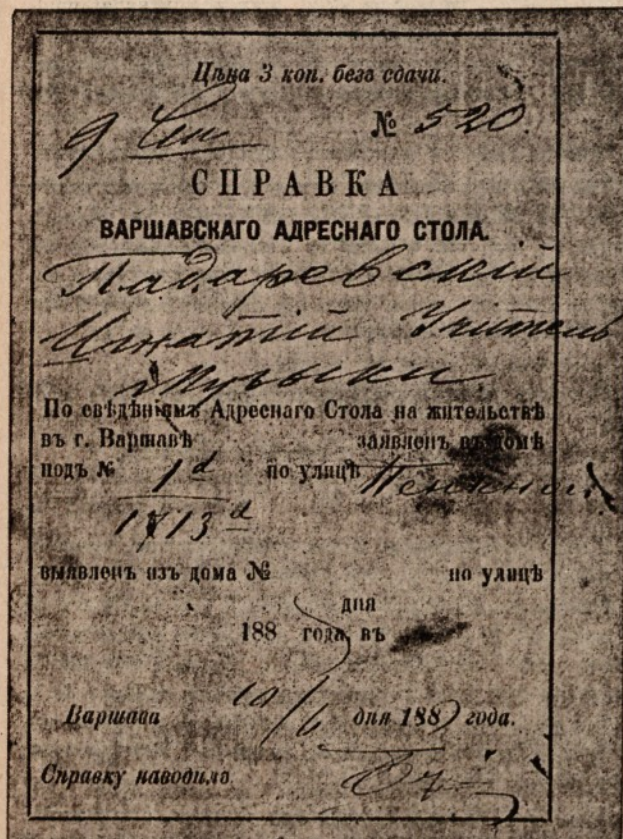 Цѣна 3 коп. безъ сдачи.
9 № 520.
СПРАВКА
ВАРШАВСКАГО АДРЕСНАГО СТОЛА.
Падаревскій
Игнатій Учитель
Музыки.
По свѣдѣніямъ Адреснаго Стола на жительствѣ
въ г. Варшавѣ заявленъ въ домѣ
подъ № 1 d по улицѣ
1713 d
выявленъ изъ дома № по улицѣ
дня
188 года, въ
Варшава 10/6 дня 188 года.
Справку наводилъ